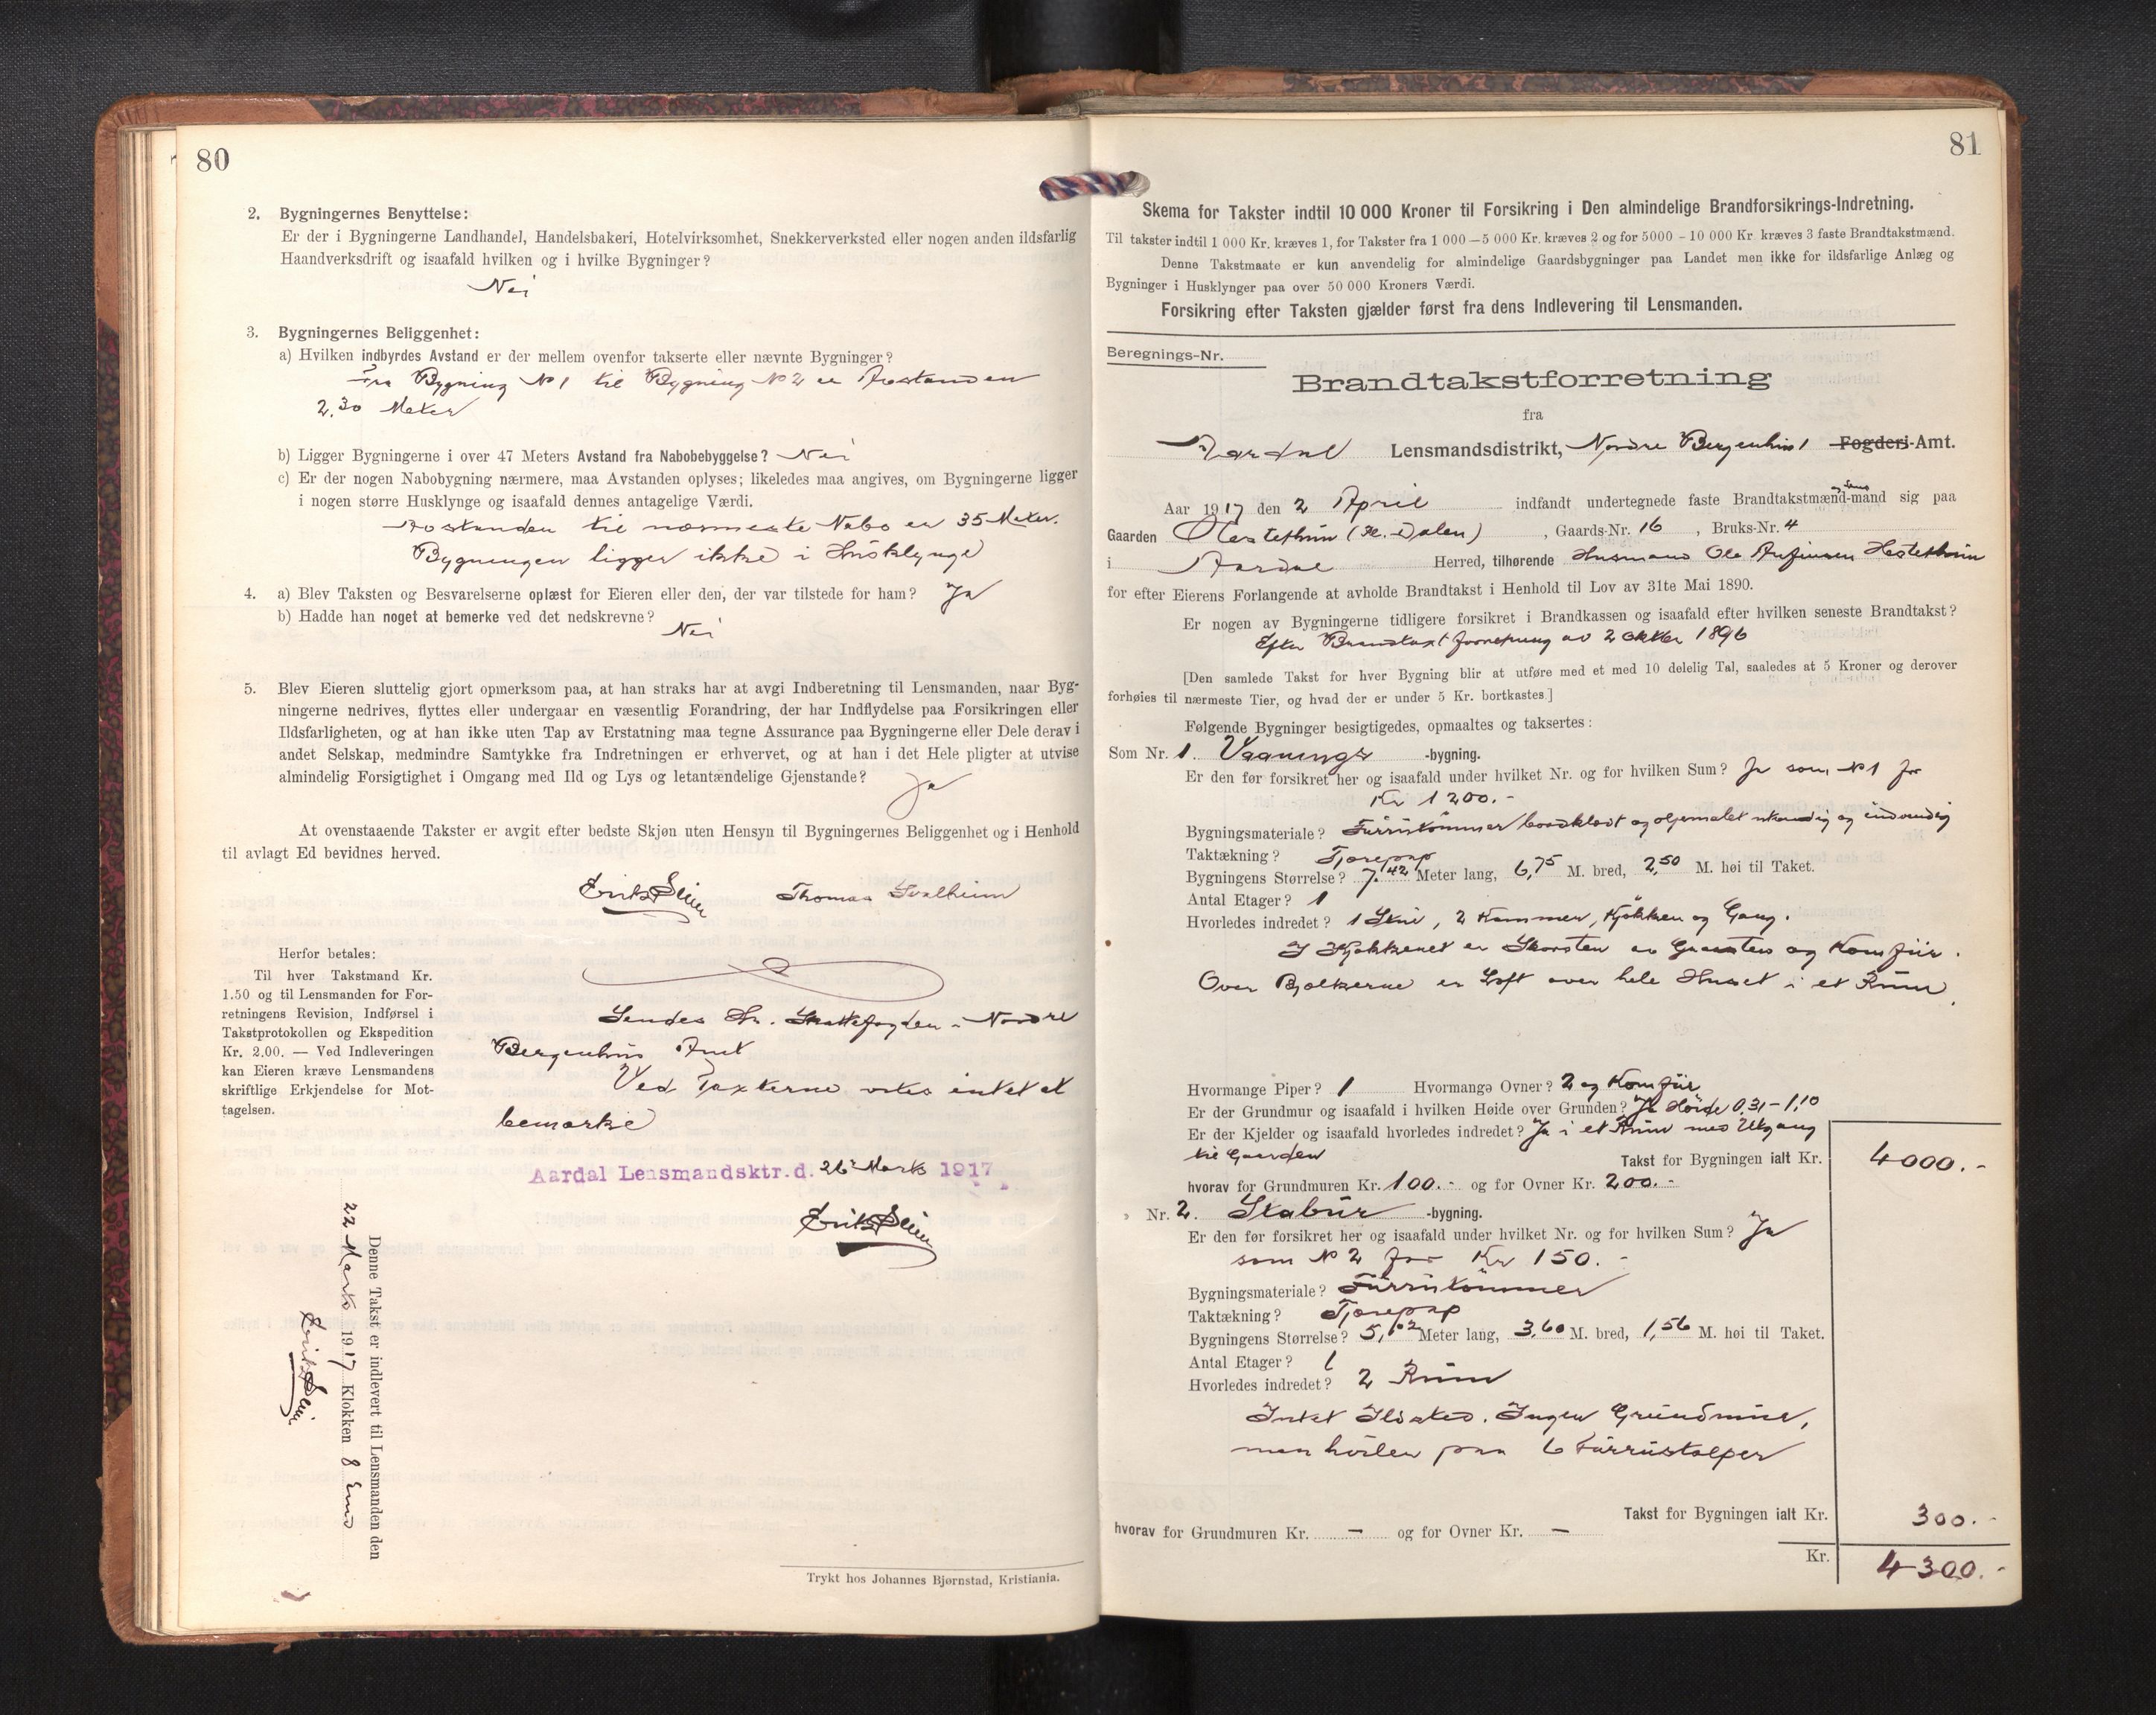 80
2. Bygningernes Benyttelse:
Er der i Bygningerne Landhandel, Handelsbakeri, Hotelvirksomhet, Snekkerverksted eller nogen anden ildsfarlig
Haandverksdrift og isaafald hvilken og i hvilke Bygninger?
Nei
3. Bygningernes Beliggenhet:
a) Hvilken indbyrdes Avstand er der mellem ovenfor takserte eller nævnte Bygninger?
Fra Bygning No 1 til Bygning No 2 er Avstanden
2,30 Meter
b) Ligger Bygningerne i over 47 Meters Avstand fra Nabobebyggelse? Nei
c) Er der nogen Nabobygning nærmere, maa Avstanden oplyses; likeledes maa angives, om Bygningerne ligger
i nogen større Husklynge og isaafald dennes antagelige Værdi.
Avstanden til nærmeste Nabo er 35 Meter.
Bygningen ligger ikke i Husklynge
4. a) Blev Taksten og Besvarelserne oplæst for Eieren eller den, der var tilstede for ham? Ja
b) Hadde han noget at bemerke ved det nedskrevne?
Nei
5. Blev Eieren sluttelig gjort opmerksom paa, at han straks har at avgi Indberetning til Lensmanden, naar Byg-
ningerne nedrives, flyttes eller undergaar en væsentlig Forandring, der har Indflydelse paa Forsikringen eller
Ildsfarligheten, og at han ikke uten Tap av Erstatning maa tegne Assurance paa Bygningerne eller Dele derav i
andet Selskap, medmindre Samtykke fra Indretningen er erhvervet, og at han i det Hele pligter at utvise
almindelig Forsigtighet i Omgang med Ild og Lys og letantændelige Gjenstande?
Ja
At ovenstaaende Takster er avgit efter bedste Skjøn uten Hensyn til Bygningernes Beliggenhet og i Henhold
til avlagt Ed bevidnes herved.
Thomas Svalheim
Herfor betales:
Til hver Takstmand Kr.
1.50 og til Lensmanden for For-
retningens Revision, Indførsel i
Takstprotokollen og Ekspedition
Kr. 2.00. — Ved Indleveringen
kan Eieren kræve Lensmandens
skriftlige Erkjendelse for Mot-
tagelsen.
Sendes Hr. Skattefogden i Nordre
Bergenhus Amt
Ved Taxterne vites intet at
bemærke
Aardal Lensmandsktr. d. 26 Marts 1917
Denne Takst er indlevert til Lensmanden den
22 Marts 1917 Klokken 8 Emd
Trykt hos Johannes Bjørnstad, Kristiania.
81
Skema for Takster indtil 10 000 Kroner til Forsikring i Den almindelige Brandforsikrings-Indretning.
Til takster indtil 1 000 Kr. kræves 1, for Takster fra 1 000—5 000 Kr. kræves 2 og for 5000 – 10 000 Kr. kræves 3 faste Brandtakstmænd.
Denne Takstmaate er kun anvendelig for almindelige Gaardsbygninger paa Landet men ikke for ildsfarlige Anlæg og
Bygninger i Husklynger paa over 50 000 Kroners Værdi.
Forsikring efter Taksten gjælder først fra dens Indlevering til Lensmanden.
Beregnings-Nr.
Brandtakstforretning
fra
Aardal Lensmandsdistrikt, Nordre Bergenhus Fogderi-Amt.
Aar 1917 den 2 April indfandt undertegnede faste Brandtakstmænd-mand sig paa
Gaarden Hestethun , Gaards-Nr. 16 , Bruks-Nr. 4
i Aardal Herred, tilhørende Husmand Ole Anfinsen Hestethun
for efter Eierens Forlangende at avholde Brandtakst i Henhold til Lov av 31te Mai 1890.
Er nogen av Bygningerne tidligere forsikret i Brandkassen og isaafald efter hvilken seneste Brandtakst?
Efter Brandtaxtforretning av 2 oktbr 1896
[Den samlede Takst for hver Bygning blir at utføre med et med 10 delelig Tal, saaledes at 5 Kroner og derover
forhøies til nærmeste Tier, og hvad der er under 5 Kr. bortkastes.]
Følgende Bygninger besigtigedes, opmaaltes og taksertes:
Som Nr. 1. Vaanings -bygning.
Er den før forsikret her og isaafald under hvilket Nr. og for hvilken Sum? Ja som No 1 for
Kr 1200.-
Bygningsmateriale? Furutømmer bordklædt og oljemalet utvendig og indvendig
Taktækning? Tjærepap
Bygningens Størrelse? 7,42 Meter lang, 6,75 M. bred, 2,50 M. høi til Taket.
Antal Etager? 1
Hvorledes indredet? 1 Stue, 2 Kammer, Kjøkken og Gang.
I Kjøkkenet er Skorsten av Graasten og Komfur.
Over Bjælkerne er Loft over hele Huset i et Rum.
Hvormange Piper? 1 Hvormange Ovner? 2 og Komfur
Er der Grundmur og isaafald i hvilken Høide over Grunden? Ja Høide 0,31–1,10
Er der Kjelder og isaafald hvorledes indredet? Ja i et Rum med Utgang
til Gaarden Takst for Bygningen ialt Kr. 4000.-
hvorav for Grundmuren Kr. 100.- og for Ovner Kr. 200.-
Nr. 2. Stabur -bygning.
Er den før forsikret her og isaafald under hvilket Nr. og for hvilken Sum? Ja
som No 2 for Kr 150.-
Bygningsmateriale? Furutømmer
Taktækning? Tjærepap
Bygningens Størrelse? 5,02 Meter lang, 3,60 M. bred, 1,56 M. høi til Taket.
Antal Etager? 1
Hvorledes indredet? 2 Rum
Intet Ildsted. Ingen Grundmur,
men hviler paa 6 Furustolper
Takst for Bygningen ialt Kr. 300.-
hvorav for Grundmuren Kr. — og for Ovner Kr. —
Kr. 4300.-